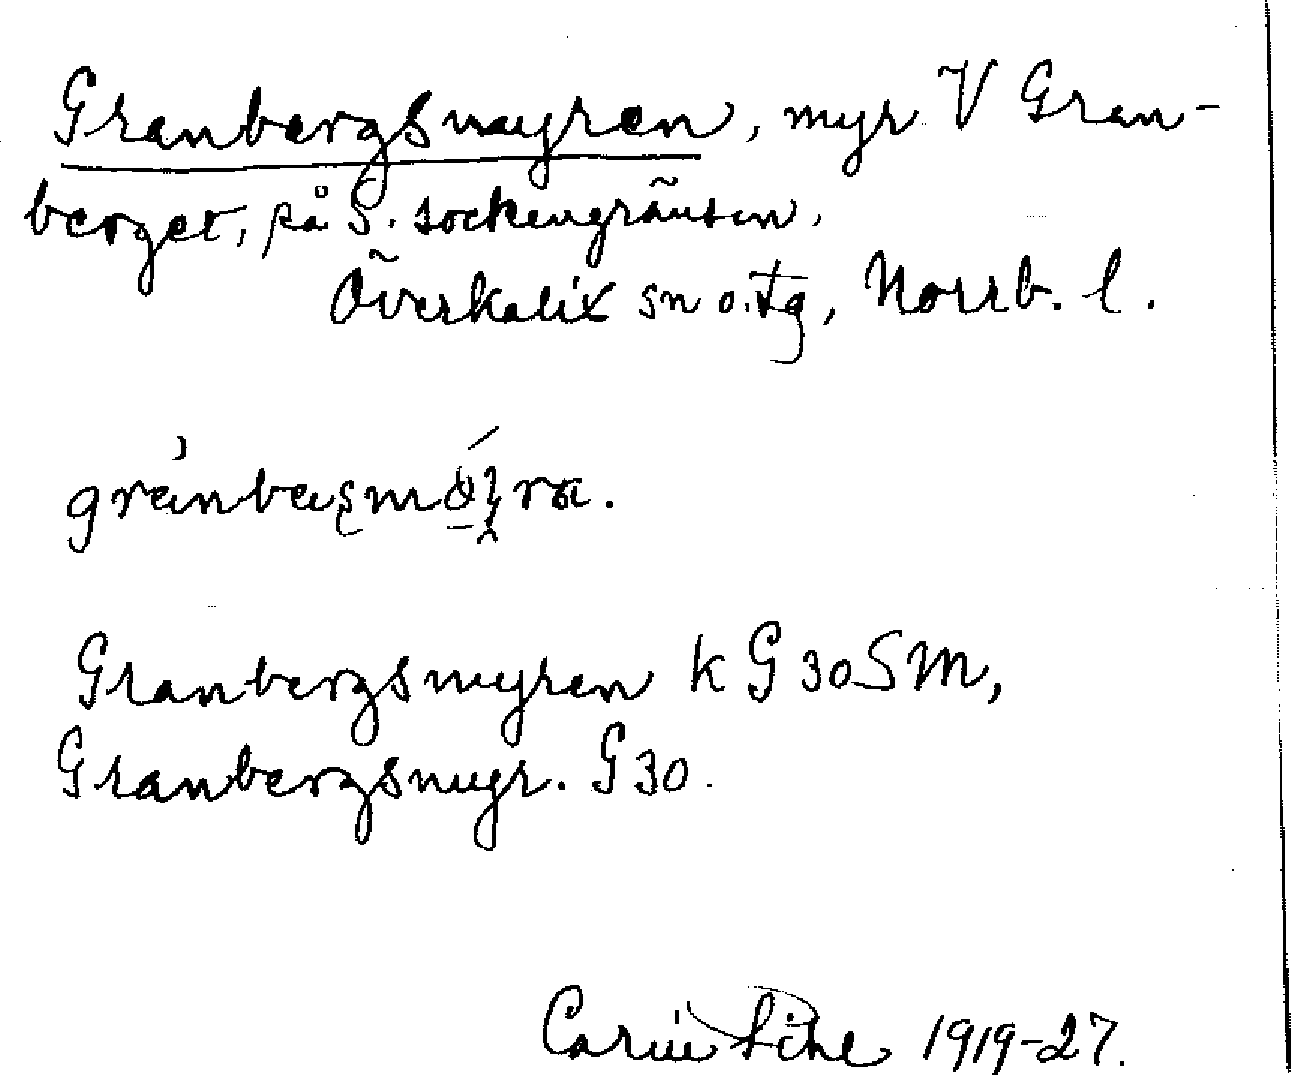 Granbergsmyren, myr V Gran-
berget, på S. sockengränsen.
Överkalix sn o. tg, Norrb. l.
Granbergsmyren k G30SM,
Granbergsmyr. G30.
Carin Pihl 1919-27.